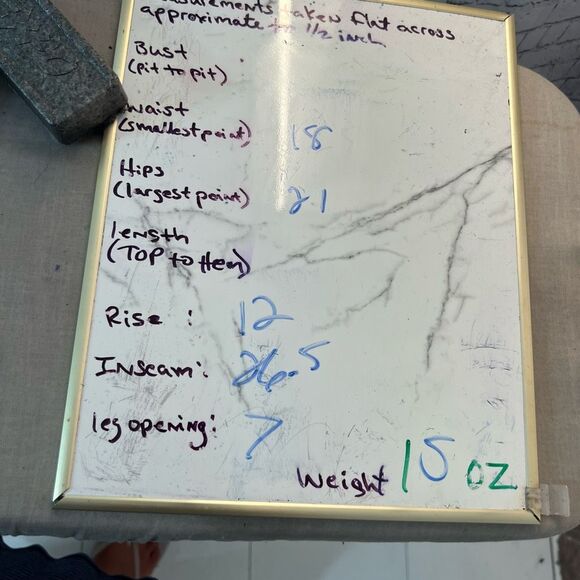 taken flat across
approximate to 1/2 inch
Bust
(pit to pit)
Waist
(smallest point) 18
Hips
(largest point) 21
length
(TOP to Hem)
Rise : 12
Inseam: 26.5
leg opening: 7
Weight 15 oz